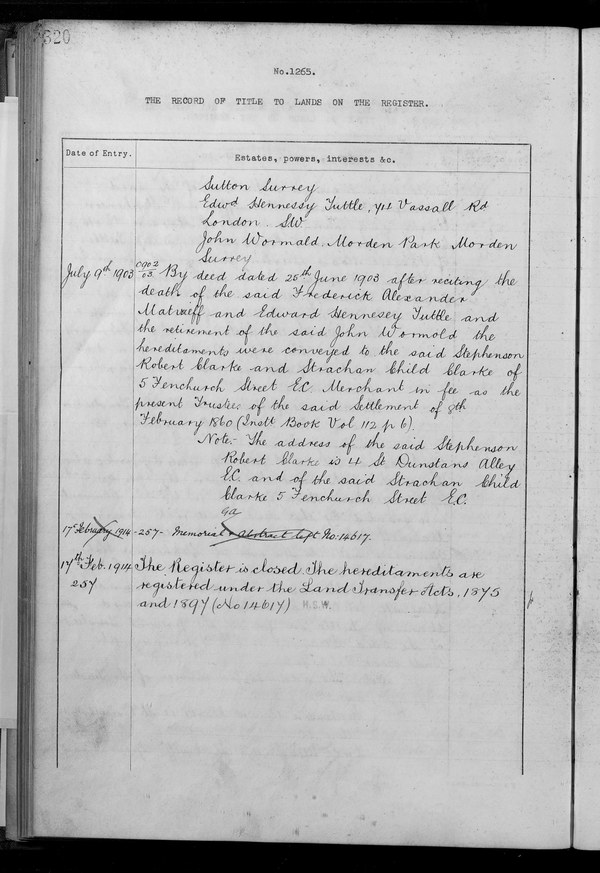 320
No.1265.
THE RECORD OF TITLE TO LANDS ON THE REGISTER.
Date of Entry.
Estates, powers, interests &c.
Sutton Surrey
Edwd Hennessy Tuttle, Vassall Rd
London. S.W.
John Wormald Morden Park Morden
Surrey
July 9th 1903
0902
03
By deed dated 25th June 1903 after reciting the
death of the said Frederick Alexander
and Edward Hennesey Tuttle and
the retirement of the said John Wormold the
hereditaments were conveyed to the said Stephenson
Robert Clarke and Strachan Child Clarke of
5 Fenchurch Street E.C. Merchant in fee as the
present Trustees of the said Settlement of 8th
February 1860 (Instt Book Vol 112 p 6).
Note:- The address of the said Stephenson
Robert Clarke is 4 St Dunstans Alley
E.C. and of the said Strachan Child
Clarke 5 Fenchurch Street E.C.
17 February 1914 -257- Memorial & Abstract left No: 14617.
17th Feb. 1914
257
The Register is closed. The hereditaments are
registered under the Land Transfer Acts, 1875
and 1897 (No 14617) H.S.W.